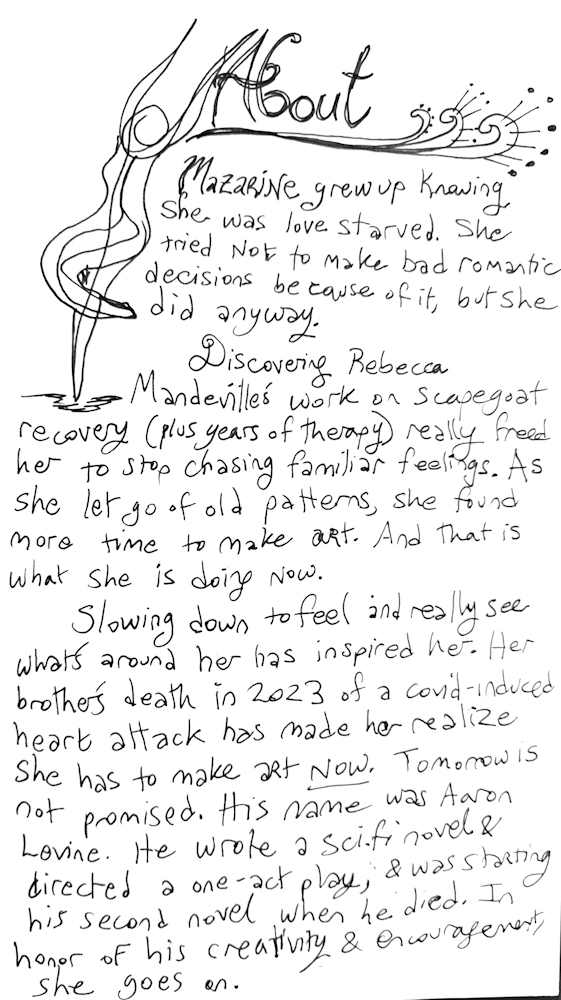 About
Mazarine grew up knowing
she was love starved. She
tried not to make bad romantic
decisions because of it, but she
did anyway.
Discovering Rebecca
Mandeville's work on scapegoat
recovery (plus years of therapy) really freed
her to stop chasing familiar feelings. As
she let go of old patterns, she found
more time to make art. And that is
what she is doing now.
Slowing down to feel and really see
what's around her has inspired her. Her
brother's death in 2023 of a covid-induced
heart attack has made her realize
she has to make art NOW. Tomorrow is
not promised. His name was Aaron
Levine. He wrote a sci.fi novel &
directed a one-act play, & was starting
his second novel when he died. In
honor of his creativity & encouragement,
she goes on.